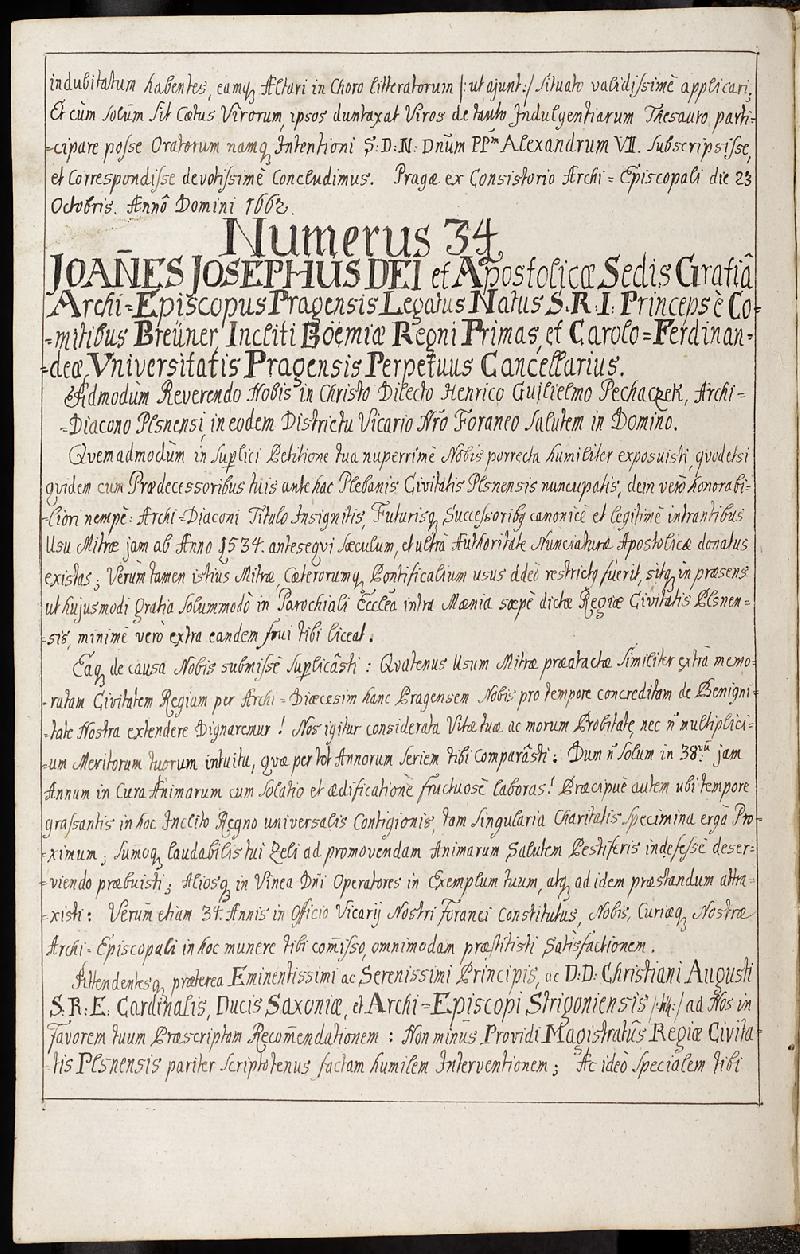 indubitatum habentes, eamq₃ Altari in Choro litteratorum /: ut ajunt :/ situato validissimè applicari,
Et cùm solùm sit Cœtus Virorum, ipsos duntaxat Viros de tanto Indulgentiarum Thesauro, parti-
-cipare posse Oratorum namq₃ Intentioni S: D: N: Dnūm PPm̄ Alexandrum VII. subscripsisse,
et Correspondisse devotissimè Concludimus. Pragæ ex Consistorio Archi = Episcopali die 23
Octobris. Annô Domini 1662.
Numerus 34
JOAÑES JOSEPHUS DEI et Apostolicæ Sedis Gratiâ
Archi=Episcopus Pragensis Legatus Natus S.R.I. Princeps è Co-
-mitibus Breüner Incliti Boemiæ Regni Primas, et Carolo=Ferdinan-
-deæ, Vniversitatis Pragensis Perpetuus Cancellarius.
Admodùm Reverendo Nobis in Christo Dilecto Henrico Guilielmo Pechaczek, Archi-
-Diacono Plsnensi, in eodem Districtu Vicario Nr̄o Foraneo Salutem in Domino.
Quemadmodùm in supl̄ici Petitione tua nuperrimè Nobis porrecta humiliter exposuisti, quod etsi
quidem cum Prædecessoribus tuis ante hac Plebanis Civitatis Plsnensis nuncupatis, dein verò honorabi-
-liori nempè: Archi=Diaconi Titulo Insignitis, Futurisq₃ Successoribq₃ canonicè et legitimè intrantibus
Usu Mitræ jam ab Anno 1534. antesequi sæculum, et ultrà Authoritate Nunciaturæ Apostolicæ donatus
existas; Verùm tamen istius Mitræ, Cæterorumq₃ Pontificalium usus adeò restricto fuerit, sitq₃ in præsens
ut hujusmodi gratia solummodò in Parochiali Eccl̄ea intra Mænia sæpè dictæ Regiæ Civitatis Plsnen-
-sis, minimè verò extra eandem frui tibi liceat.
Eaq₃ de causa Nobis submissè supl̄icâsti : Qvatenus Usum Mitræ præattactæ similiter extrà memo-
-ratam Civitatem Regiam per Archi=Diæcesim hanc Pragensem Nobis pro tempore concreditam de Benigni-
-tate Nostra extendere Dignaremur ! Nos igitur considerata Vitæ tuæ ac morum Probitate, nec n̄ multiplici-
-um Meritorum tuorum intuitu, quæ per tot Annorum Seriem tibi comparâsti: Dum n̄ solùm in 38um jam
Annum in Cura Animarum cum solatio et ædificatione fructuosè laboras! Præcipuè autem ubi tempore
grassantis in hoc Inclito Regno universalis Contigionis, tam singularia Charitatis specimina ergà Pro-
-ximum; sumoq₃ laudabilis tui Zeli ad promovendam Animarum Salutem Pestiferis indefessè deser-
-viendo præbuisti; Aliosq₃ in Vinea Dn̄i Operatores in Exemplum tuum, atq₃ ad idem præstandum attra-
-xisti: Verùm etiam 34. Annis in Officio Vicarij Nostri Foranei Constitutus, Nobis, Curiæq₃ Nostræ
Archi-Episcopali in hoc munere tibi com̄isso, omnimodam præstitisti Satisfactionem.
Attendentesq₃ præterea Eminentissimi ac Serenissimi Principis, ac D.D. Christiani Augusti
S.R.E. Cardinalis, Ducis Saxoniæ, et Archi-Episcopi Strigoniensis /:tit:/ ad Nos in
Favorem tuum Præscriptam Recom̄endationem : Non minus Providi Magistratûs Regiæ Civita-
-tis Plsnensis pariter scriptotenus factam humilem Interventionem; Ac ideò specialem tibi